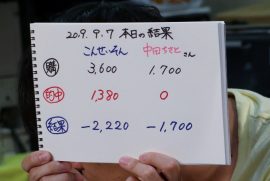 20.9.9.7 本日の結果
こんせいそん 中田ちさとさん
購 3,600 1,700
的中 1,380 0
結果 -2,220 -1,700